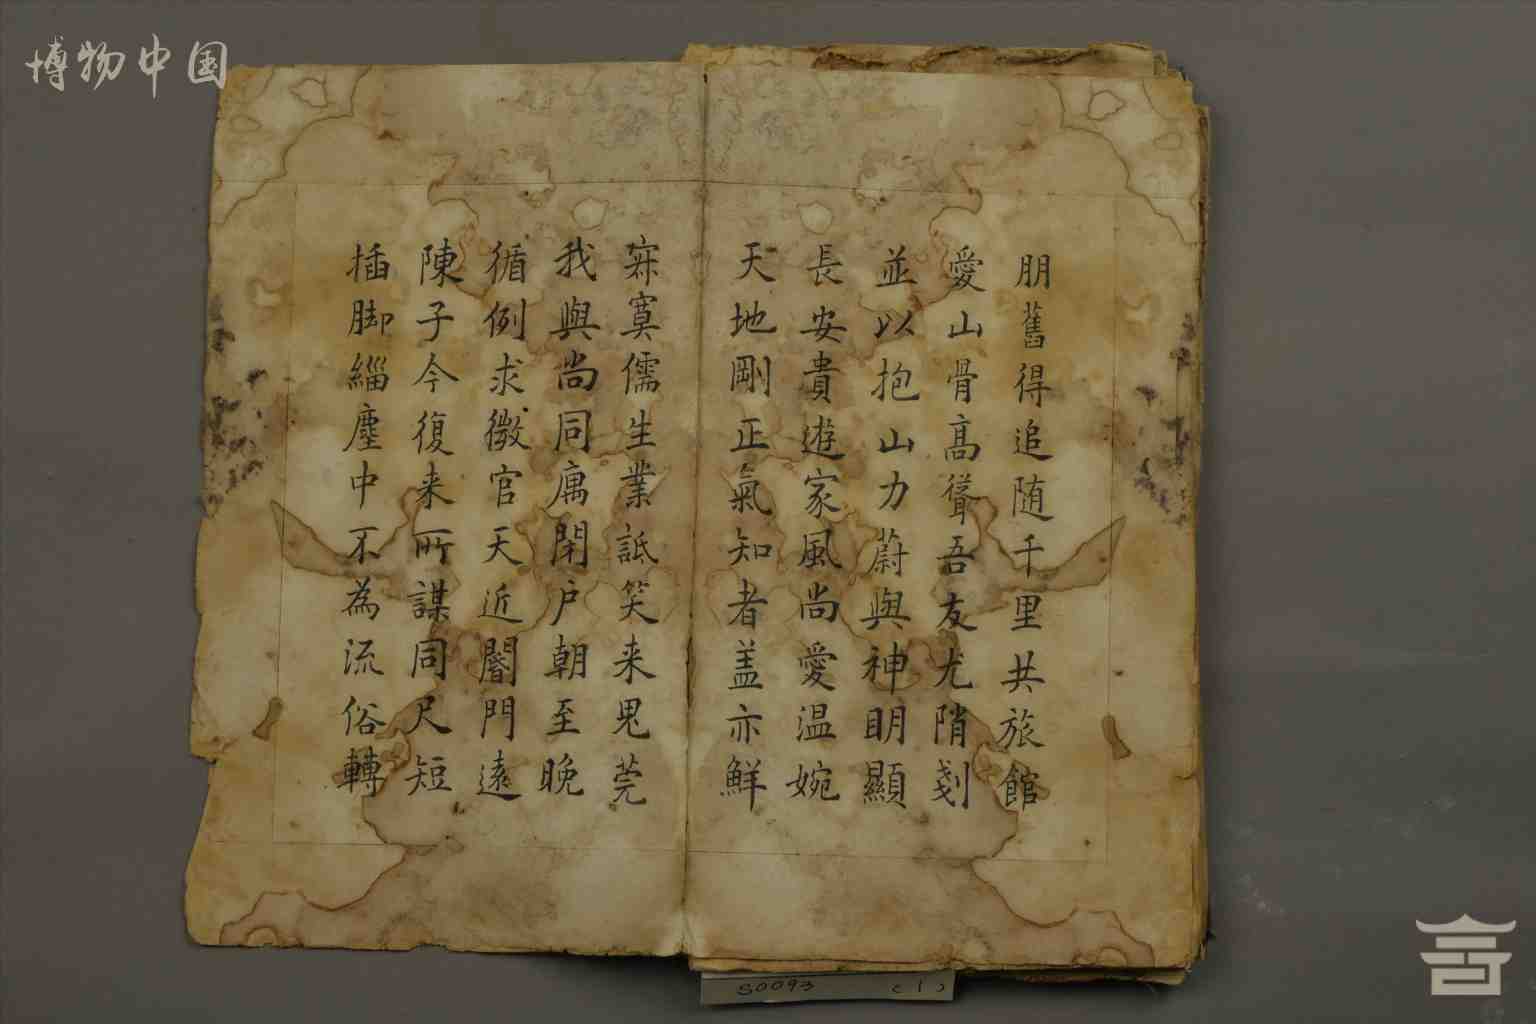 博物中国
朋舊得追随千里共旅館
愛山骨髙聳吾友尤陗刻
並以抱山力蔚與神明顯
長安貴遊家風尚愛温婉
天地剛正氣知者盖亦鮮
寂寞儒生業詆笑来鬼莞
我與尚同寓閉户朝至晚
循例求微官天近閽門遠
陳子今復来所謀同尺短
插脚緇塵中不為流俗轉
S0093 (1)